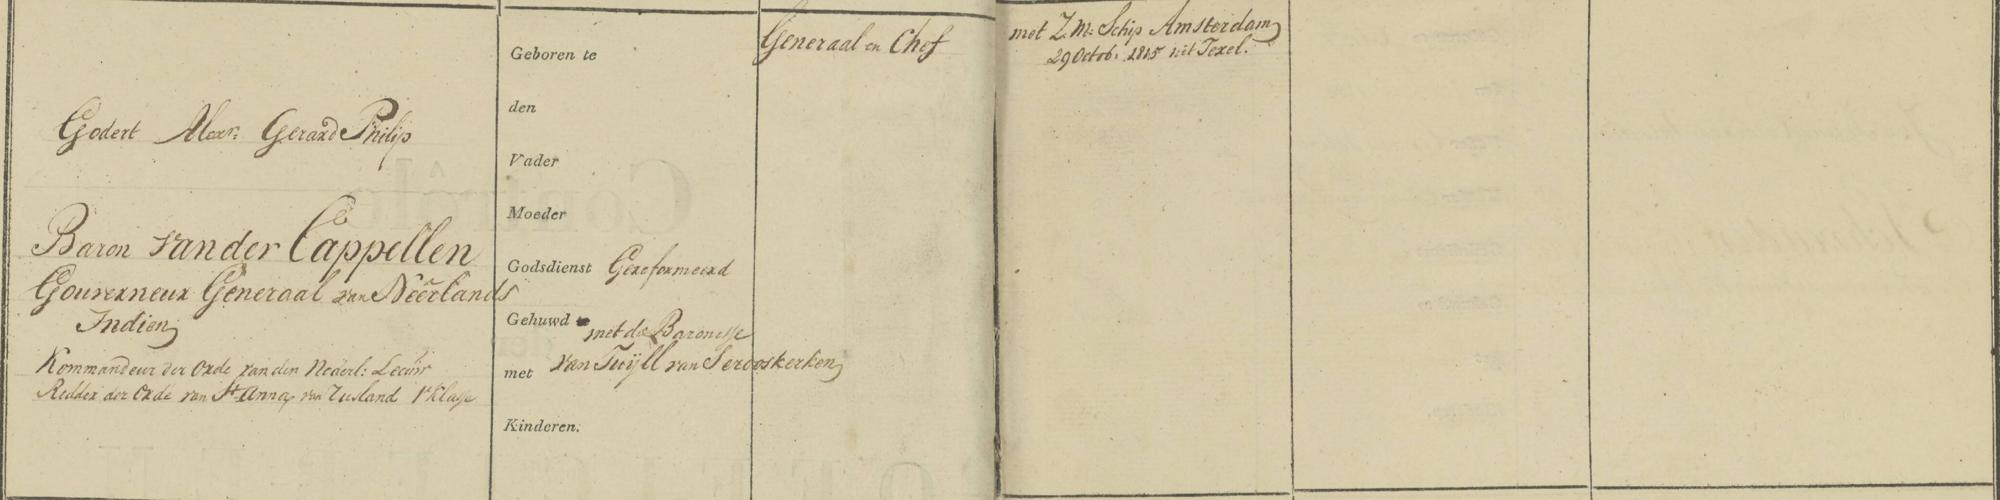 Godert Alexr. Gerard Philip
Baron van der Cappellen
Gouverneur Generaal van Neêrlands
Indien
Kommandeur der Orde van den Nederl: Leeuw
Ridder der Orde van St. Anna van Rusland 1e Klasse
Geboren te
den
Vader
Moeder
Godsdienst Gereformeerd
Gehuwd met de Baronesse
met van Tuÿll van Serooskerken
Kinderen.
Generaal en Chef
met Z. M. Schip Amsterdam
29 Octob. 1815 uit Texel.